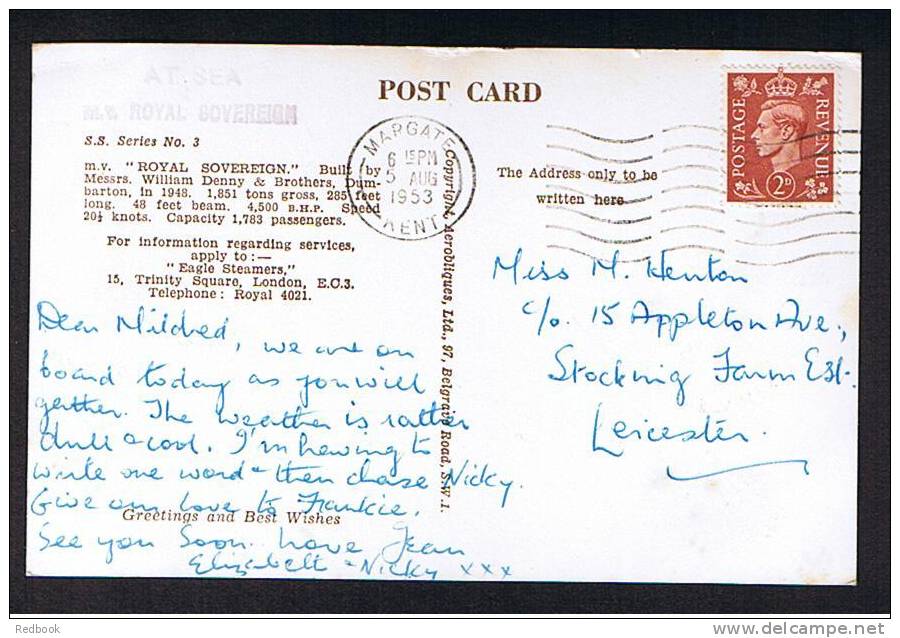 AT SEA
m.v. ROYAL SOVEREIGN
POST CARD
S.S. Series No. 3
m.v. "ROYAL SOVEREIGN." Built by
Messrs. William Denny & Brothers, Dum-
barton, in 1948. 1,851 tons gross, 285 feet
long. 48 feet beam. 4,500 B.H.P. Speed
20½ knots. Capacity 1,783 passengers.
For information regarding services,
apply to:—
"Eagle Steamers,"
15, Trinity Square, London, E.C.3.
Telephone: Royal 4021.
Dear Mildred,
we are on
board today as you will
gather. The weather is rather
dull & cool. I'm having to
write one word & then chase Nicky.
Give our love to Frankie.
Greetings and Best Wishes
See you soon. Love Jean
Elizabeth & Nicky xxx
Copyright Aerobliques, Ltd., 97, Belgrave Road, S.W.1.
MARGATE
6 15 PM
5 AUG
1953
KENT
The Address only to be
written here
POSTAGE
REVENUE
2D
Miss M. Henton
c/o. 15 Appleton Ave.,
Stocking Farm Est.
Leicester.
Redbook
delcampe.net